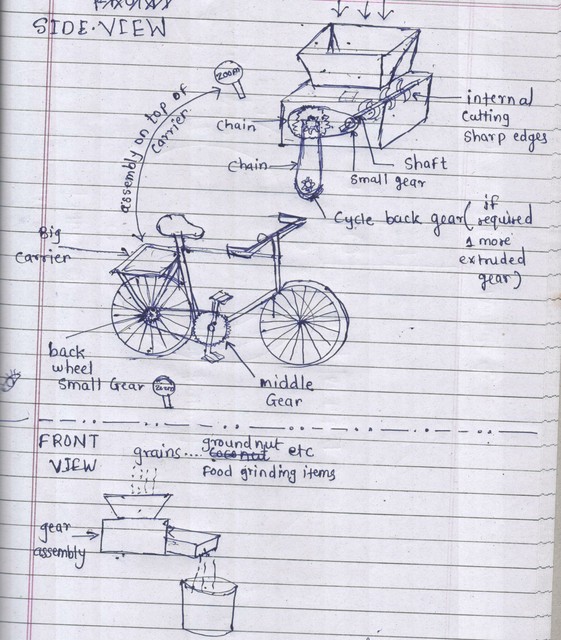 SIDE-VIEW
Zoom
assembly on top of
carrier
Chain
Chain
internal
Cutting
sharp edges
Shaft
small gear
Cycle back gear (if
required
1 more
extruded
gear)
Big
Carrier
back
wheel
Small Gear
Zoom
middle
Gear
FRONT
VIEW
grains.... groundnut etc
coconut
Food grinding items
gear
assembly